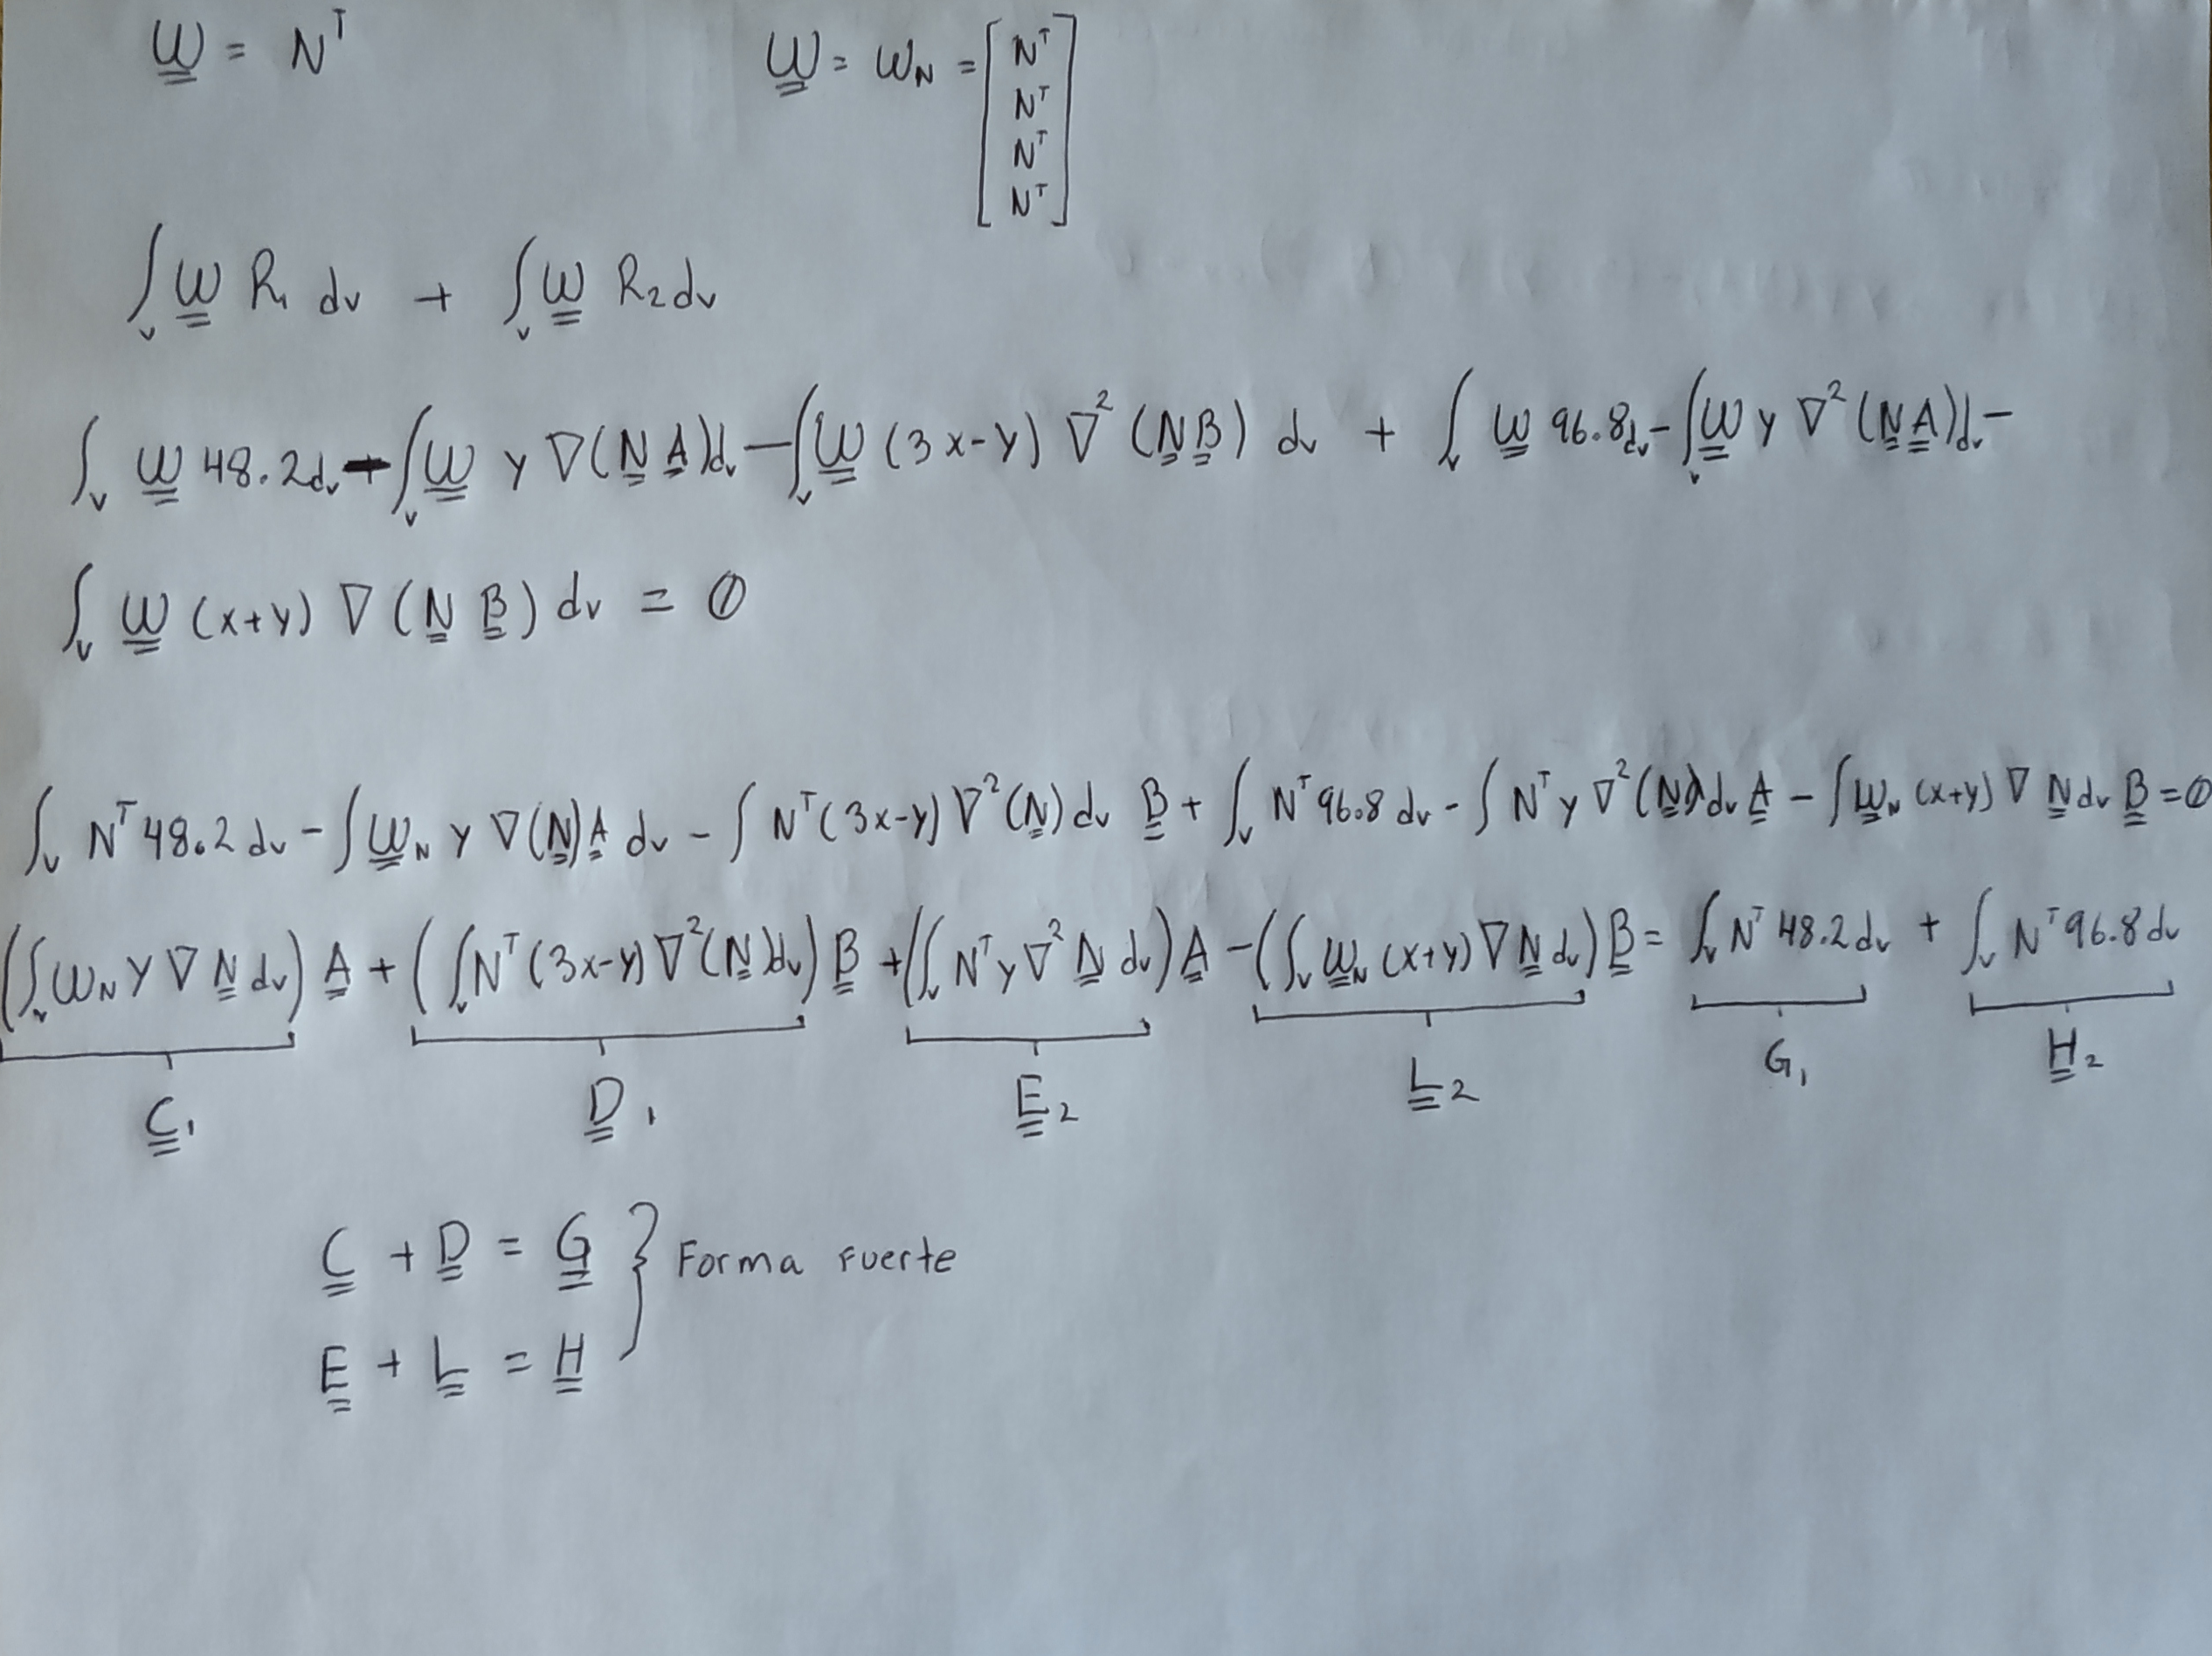 W = Nᵀ    W = W_N = [Nᵀ Nᵀ Nᵀ Nᵀ]
∫ᵥ W R₁ dv + ∫ᵥ W R₂ dv
∫ᵥ W 48.2 dv - ∫ᵥ W y ∇(N A) dv - ∫ᵥ W (3x-y) ∇² (N B) dv + ∫ᵥ W 96.8 dv - ∫ᵥ W y ∇² (N A) dv -
∫ᵥ W (x+y) ∇ (N B) dv = 0
∫ᵥ Nᵀ 48.2 dv - ∫ W_N y ∇(N) A dv - ∫ Nᵀ (3x-y) ∇² (N) dv B + ∫ᵥ Nᵀ 96.8 dv - ∫ Nᵀ y ∇² (N) dv A - ∫ W_N (x+y) ∇ N dv B = 0
(∫ᵥ W_N y ∇ N dv) A + (∫ᵥ Nᵀ (3x-y) ∇² (N) dv) B + (∫ᵥ Nᵀ y ∇² N dv) A - (∫ᵥ W_N (x+y) ∇ N dv) B = ∫ᵥ Nᵀ 48.2 dv + ∫ᵥ Nᵀ 96.8 dv
C₁ D₁ E₂ L₂ G₁ H₂
C + D = G } Forma fuerte
E + L = H